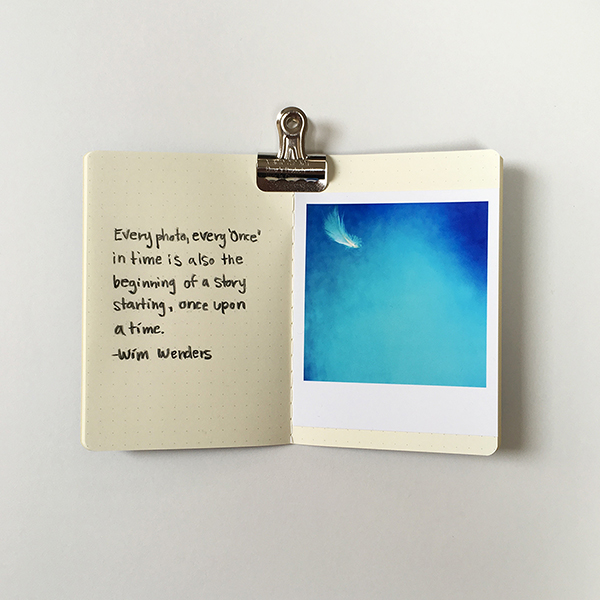 Every photo, every 'Once'
in time is also the
beginning of a story
starting, once upon
a time.
-Wim Wenders